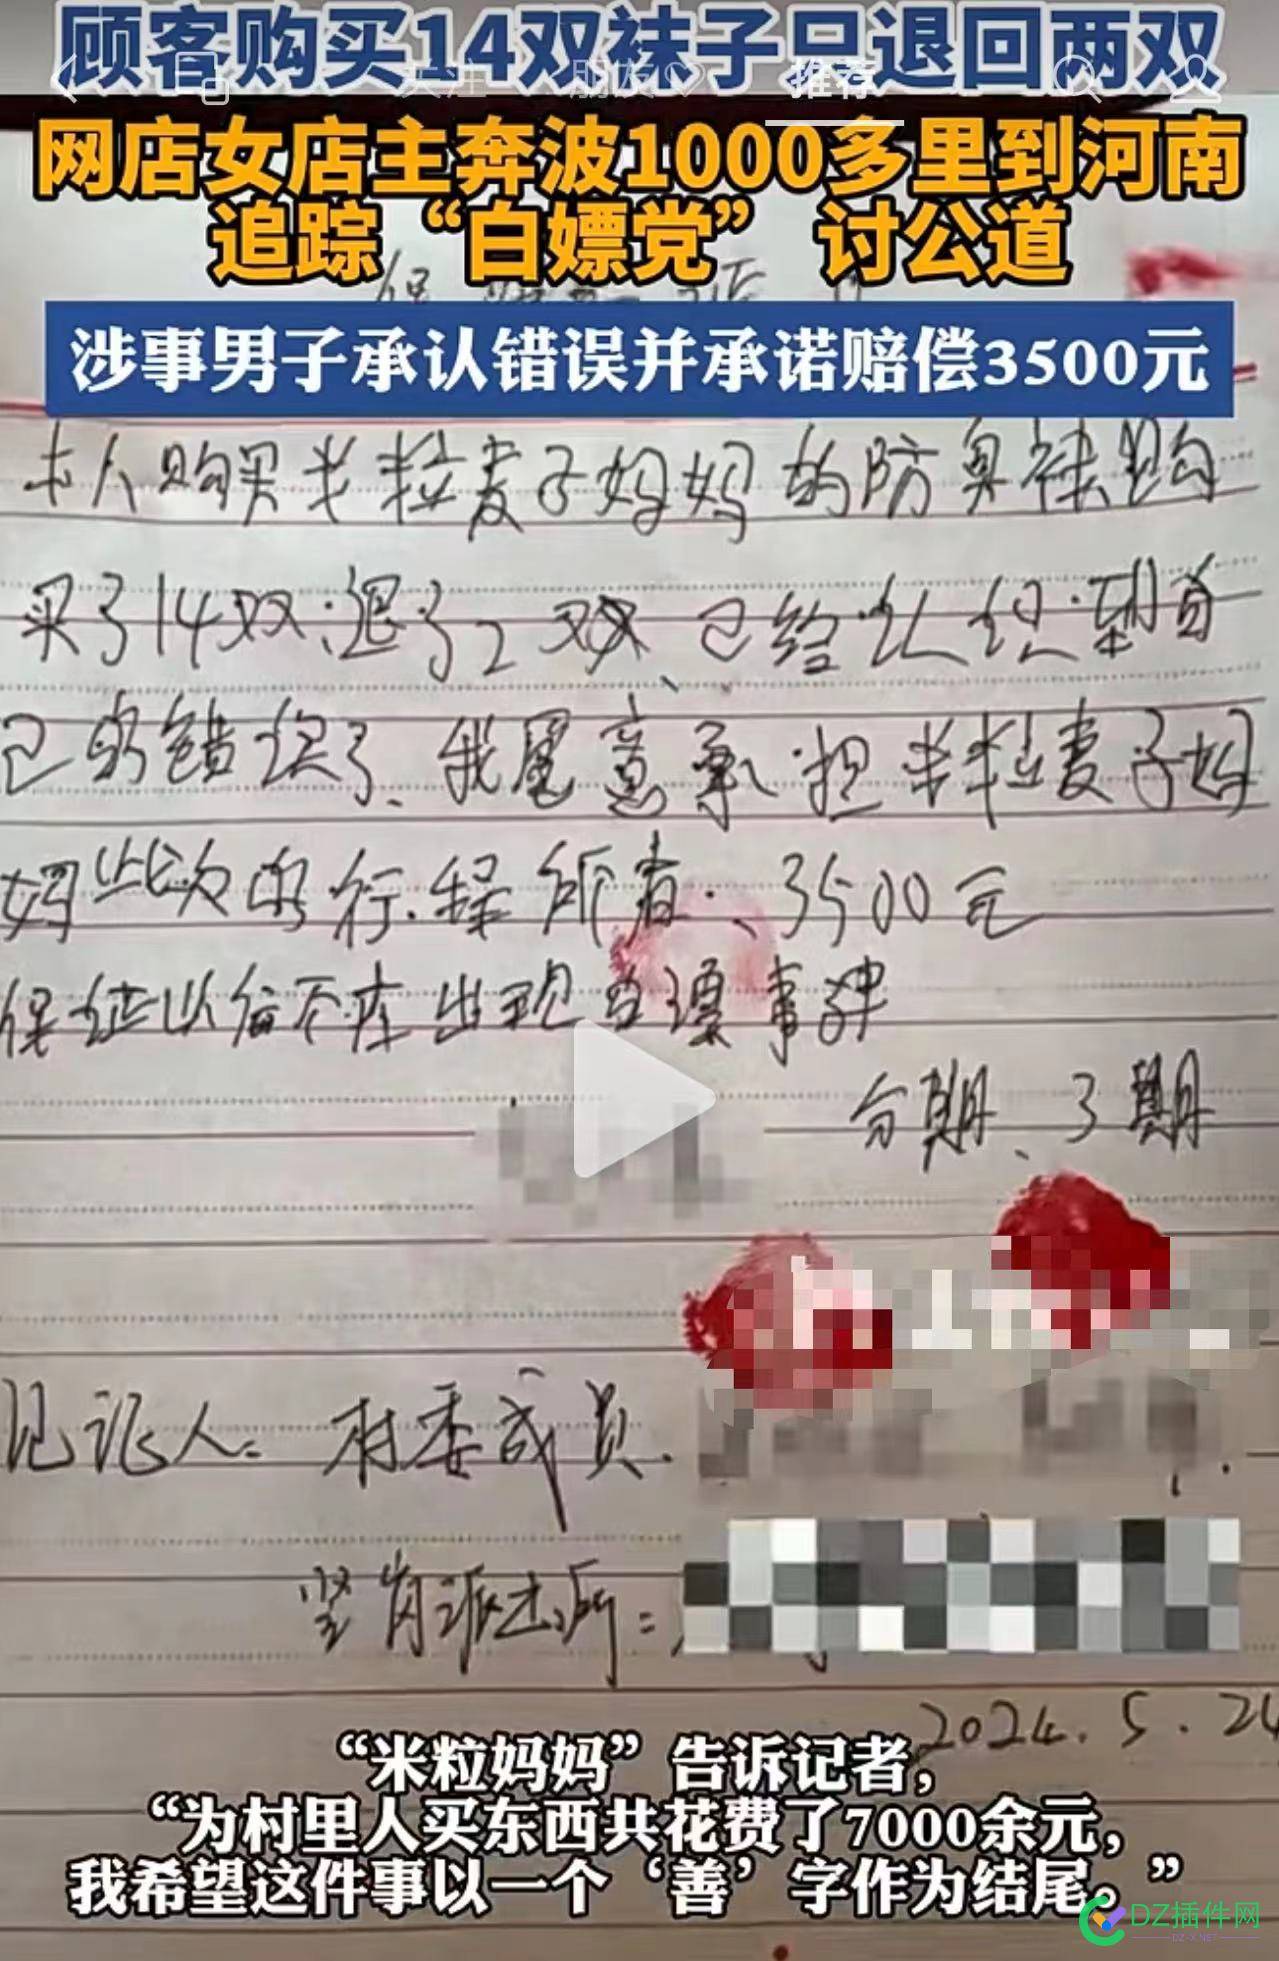 顾客购买14双袜子只退回两双
关注 朋友 推荐
网店女店主奔波1000多里到河南
追踪“白嫖党” 讨公道
涉事男子承认错误并承诺赔偿3500元
本人购买米粒麦子妈妈的防臭袜购
买了14双退了2双、已经认识到自
己的错误了、我愿意承担米粒麦子妈
妈此次的行程所有、3500元
保证以后不在出现白嫖事件
分期、3期
见证人: 村委成员.
坚岗派出所:
2024.5.24
“米粒妈妈”告诉记者,
“为村里人买东西共花费了7000余元,
我希望这件事以一个‘善’字作为结尾。”
DZ插件网
DZ-X.NET